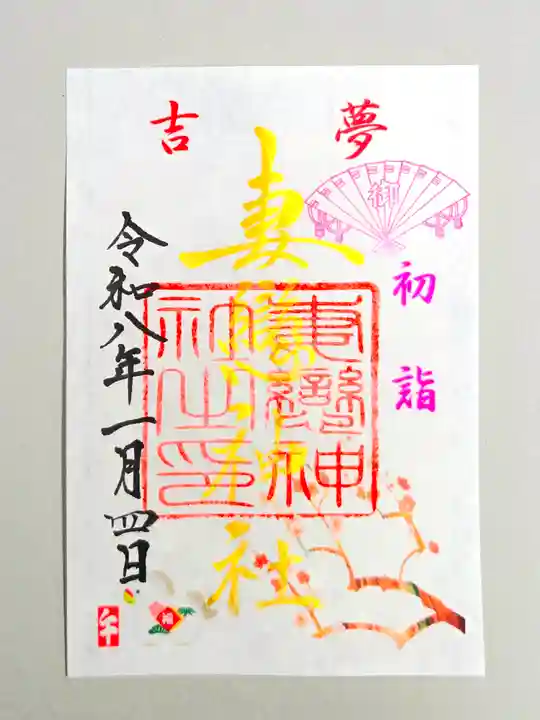 夢
吉
御
初詣
妻戀神社
妻戀神
社之印
令和八年一月四日
午
福